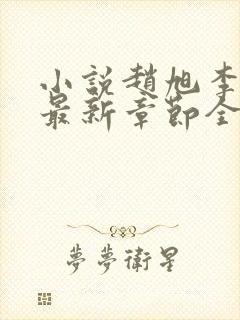 小說趙旭李
最新章節全
夢夢衛星